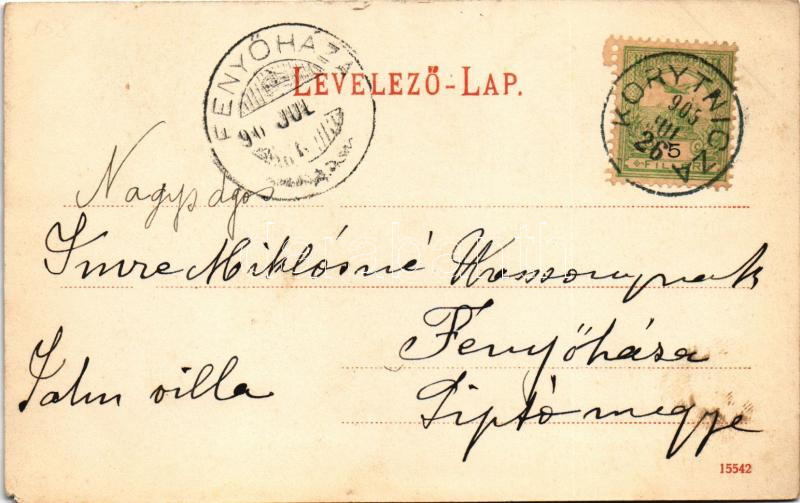 FENYŐHÁZA
90 JUL
LEVELEZŐ-LAP.
KORYTNICZA
903 JUL 26
5
FILLÉR
Nagyságos
Imre Miklósné Asszonynak
Fenyőháza
Jahn villa
Liptó megye
15542